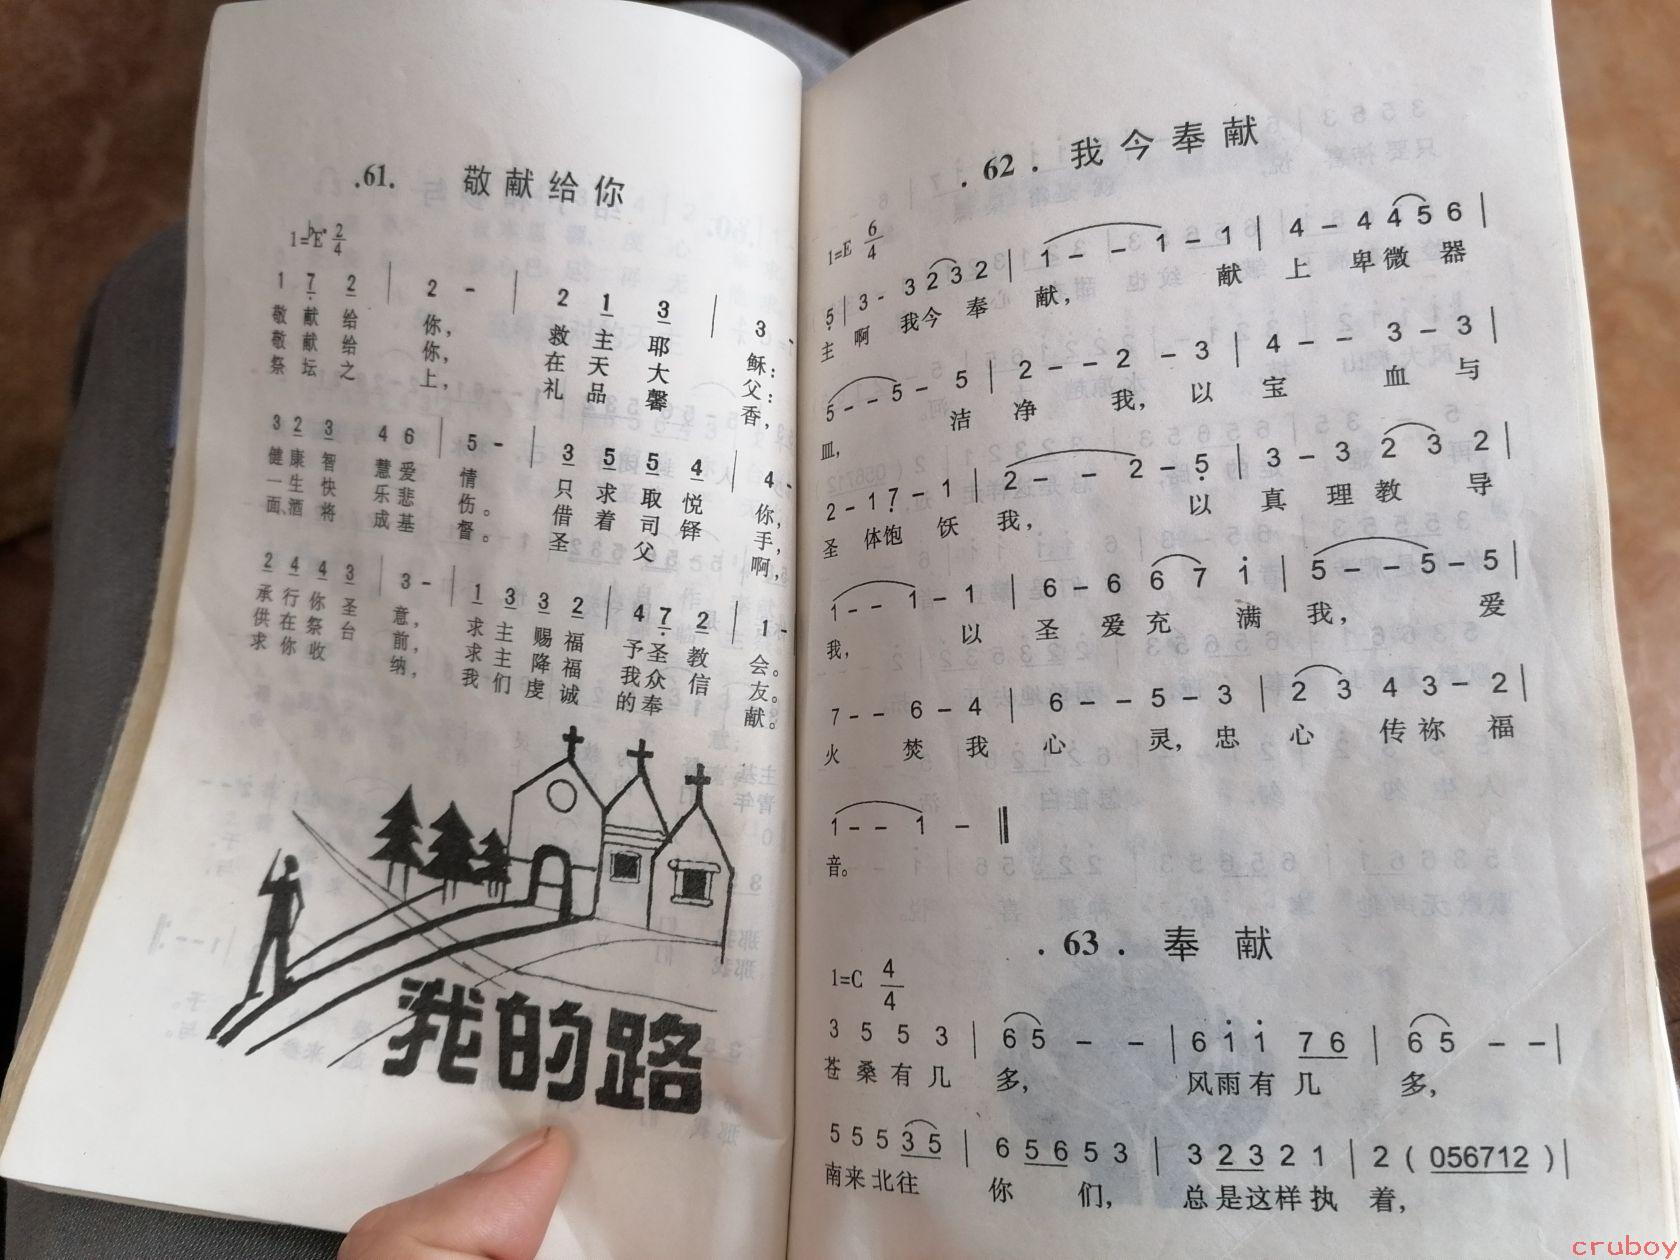 .61. 敬献给你
1=♭E 2/4
1 7 2 | 2 - | 2 1 3 | 3 -
敬献给你，救主耶稣：
敬献给你，在天大父：
祭坛之上，礼品馨香，
3 2 3 4 6 | 5 - | 3 5 5 4 | 4 -
健康智慧爱情。只求取悦你，
一生快乐悲伤。借着司铎手，
面、酒将成基督。圣父啊，
2 4 4 3 | 3 - | 1 3 3 2 | 4 7 2 | 1 -
承行你圣意，求主赐福予圣教会。
供在祭台前，求主降福我众信友。
求你收纳，我们虔诚的奉献。
我的路
.62. 我今奉献
1=E 6/4
5 | 3 - 3 2 3 2 | 1 - - 1 - 1 | 4 - 4 4 5 6 |
主啊我今奉献，献上卑微器
5 - - 5 - 5 | 2 - - 2 - 3 | 4 - - 3 - 3 |
皿，洁净我，以宝血与
2 - 1 7 - 1 | 2 - - 2 - 5 | 3 - 3 2 3 2 |
圣体饱饫我，以真理教导
1 - - 1 - 1 | 6 - 6 6 7 i | 5 - - 5 - 5 |
我，以圣爱充满我，爱
7 - - 6 - 4 | 6 - - 5 - 3 | 2 3 4 3 - 2 |
火焚我心灵，忠心传祢福
1 - - 1 - ‖
音。
.63. 奉献
1=C 4/4
3 5 5 3 | 6 5 - - | 6 i i 7 6 | 6 5 - - |
苍桑有几多，风雨有几多，
5 5 5 3 5 | 6 5 6 5 3 | 3 2 3 2 1 | 2 ( 056712 ) |
南来北往你们，总是这样执着，
cruboy